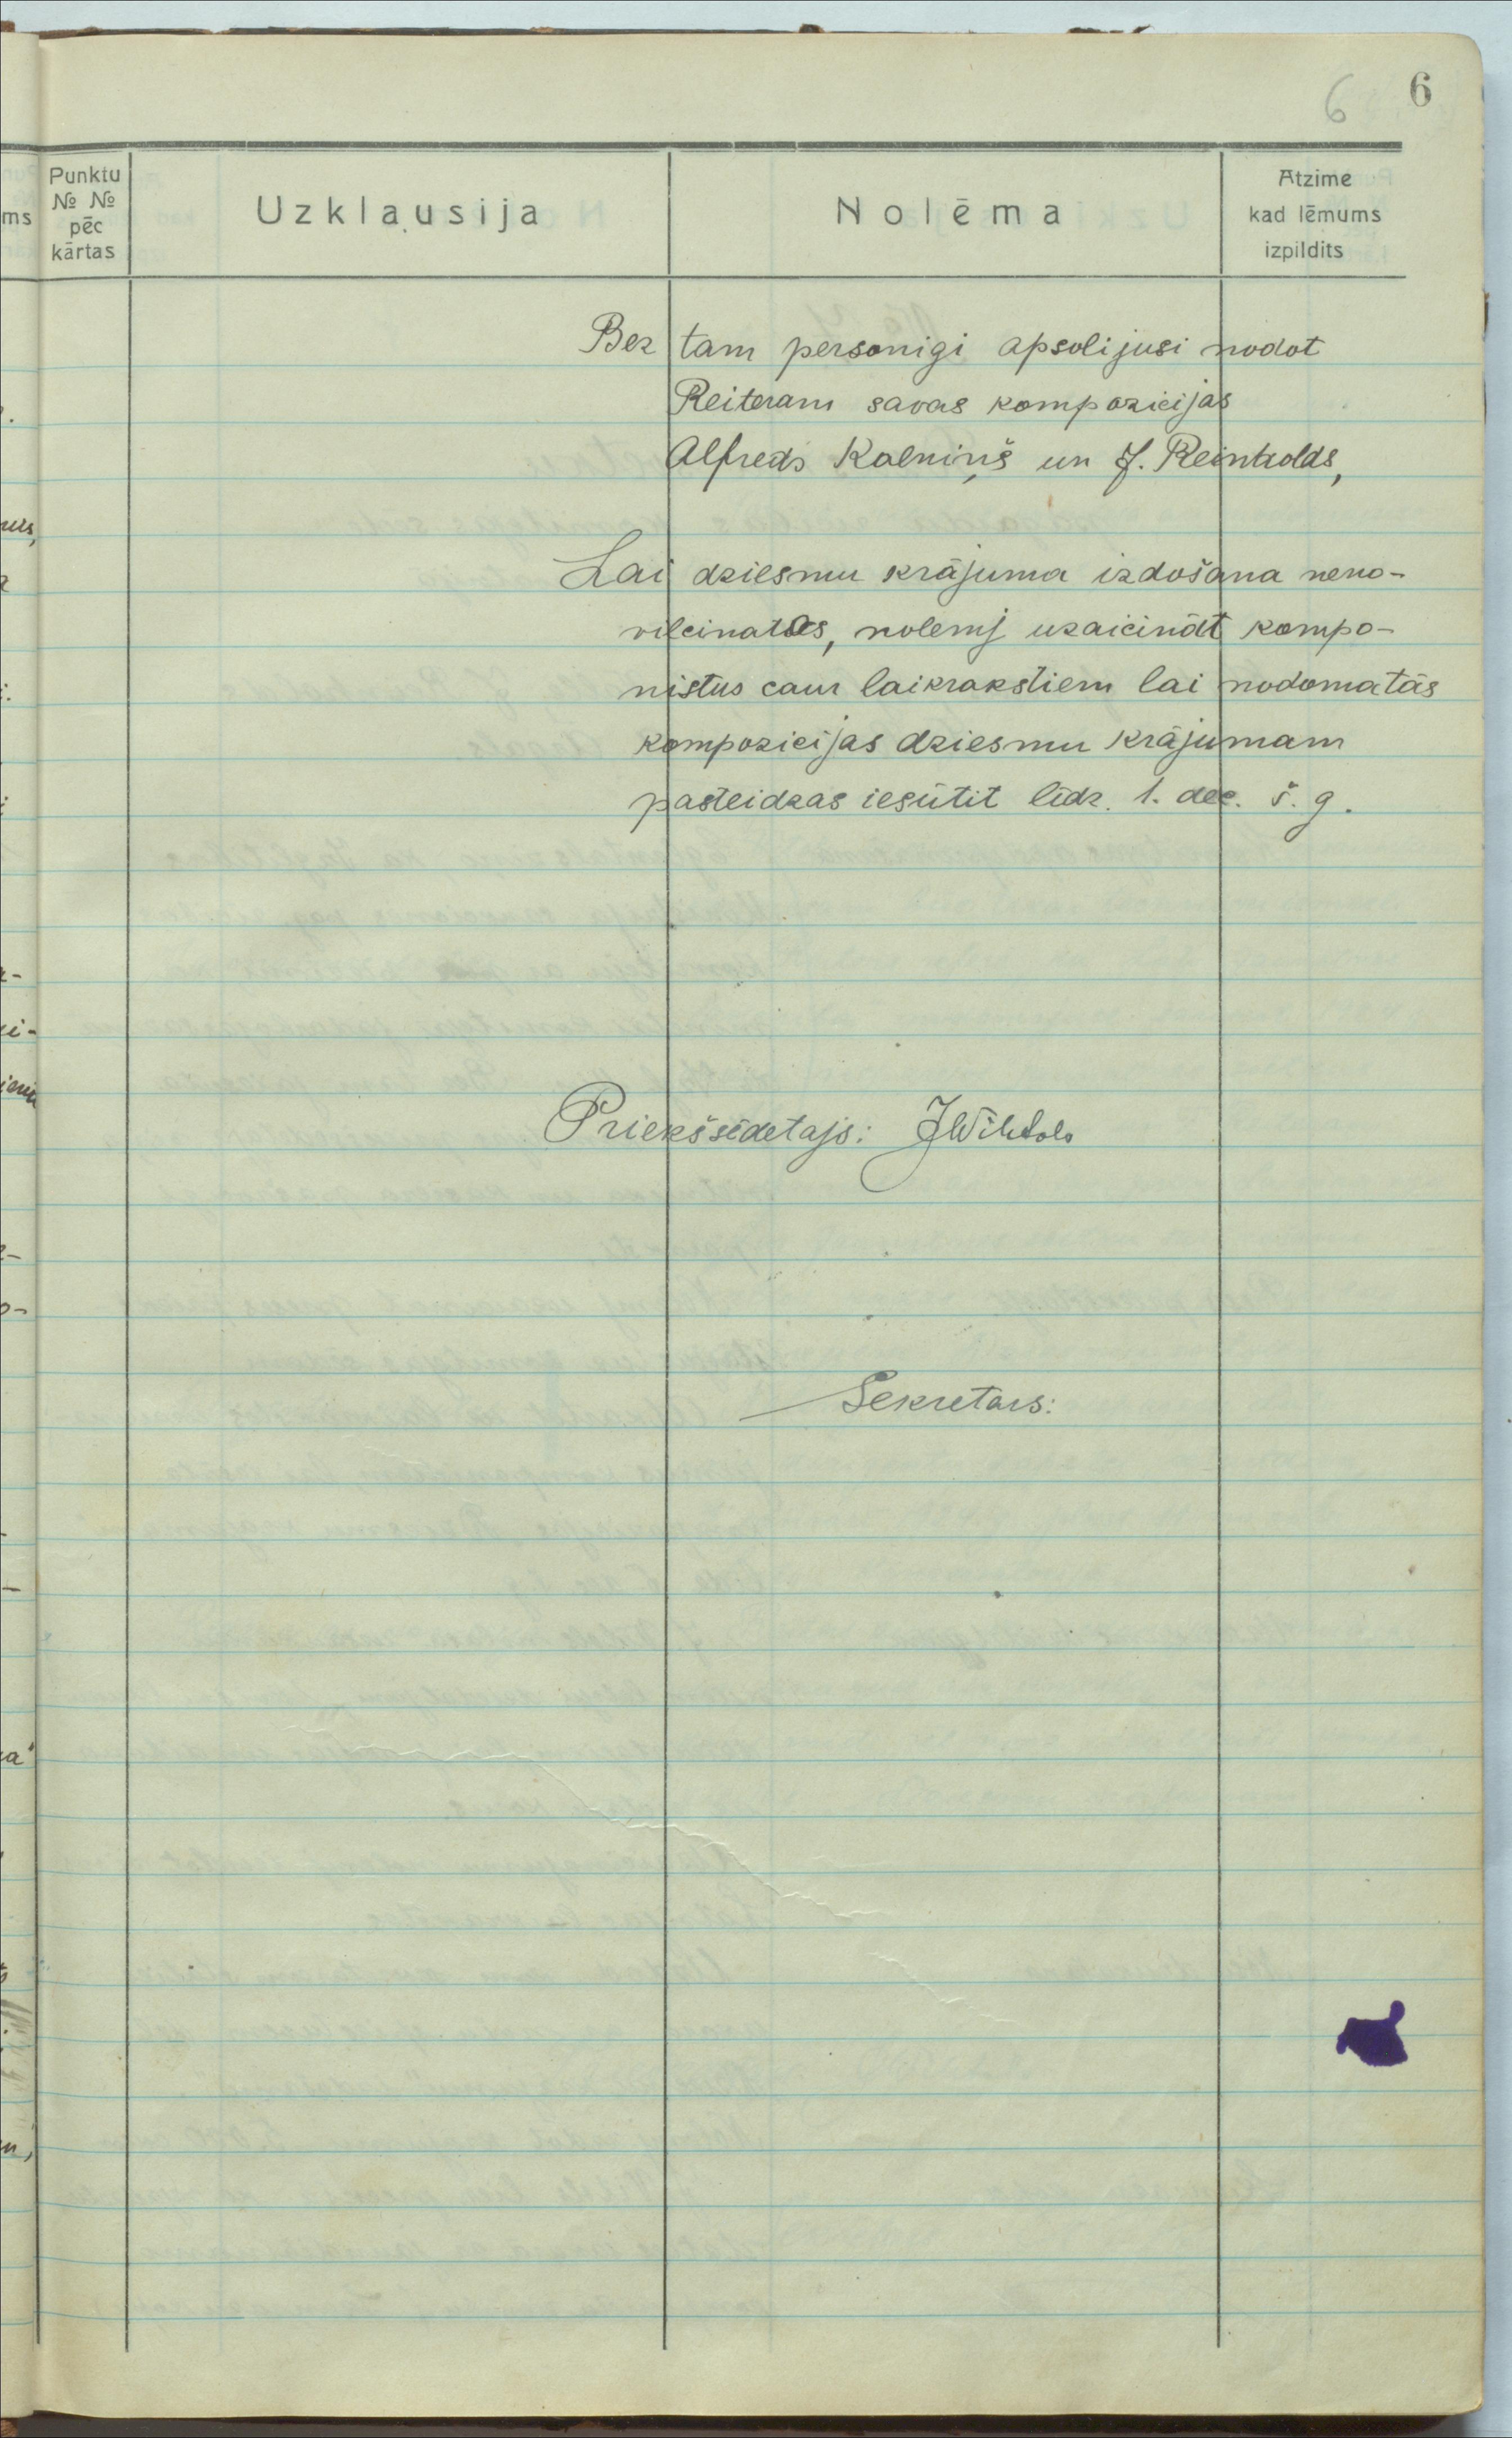 6 6
Punktu № № pēc kārtas
Uzklausija
Nolēma
Atzime kad lēmums izpildits
Bez tam personigi apsolijusi nodot
Reiteram savas kompozicijas
Alfreds Kalniņš un J. Reinholds,
Lai dziesmu krājuma izdošana neno-
vilcinatos, nolemj uzaicināt kompo-
nistus caur laikrakstiem lai nodomatās
kompozicijas dziesmu krājumam
pasteidzas iesūtit līdz. 1. dec. š. g.
Priekšsēdetajs: JWihtols
Sekretars: